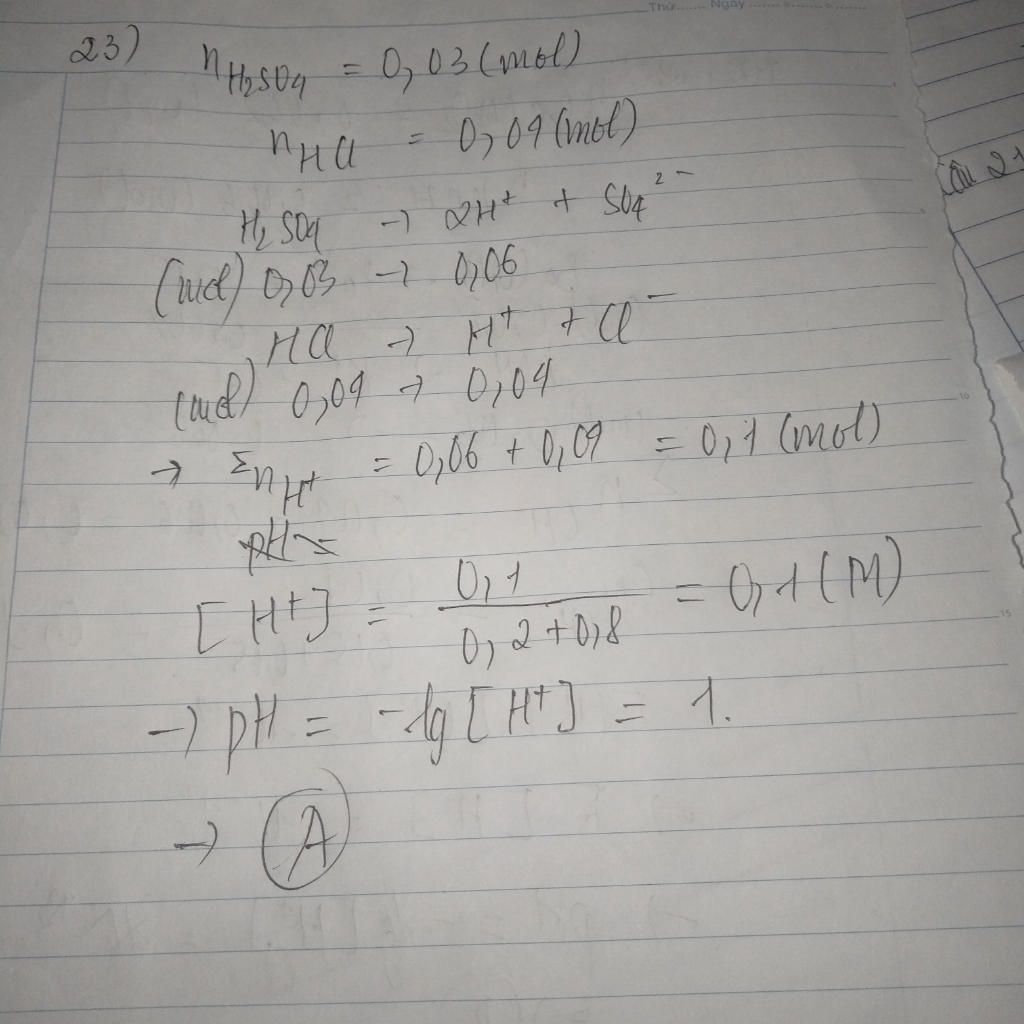 Thứ........ Ngày ....................
23) nH₂SO₄ = 0,03 (mol)
nHCl = 0,04 (mol)
Câu 21
H₂SO₄ → 2H⁺ + SO₄²⁻
(mol) 0,03 → 0,06
HCl → H⁺ + Cl⁻
(mol) 0,04 → 0,04
→ ΣnH⁺ = 0,06 + 0,04 = 0,1 (mol)
pH =
[H⁺] = 0,1 / 0,2 + 0,8 = 0,1 (M)
→ pH = -lg [H⁺] = 1.
→ A
10
15